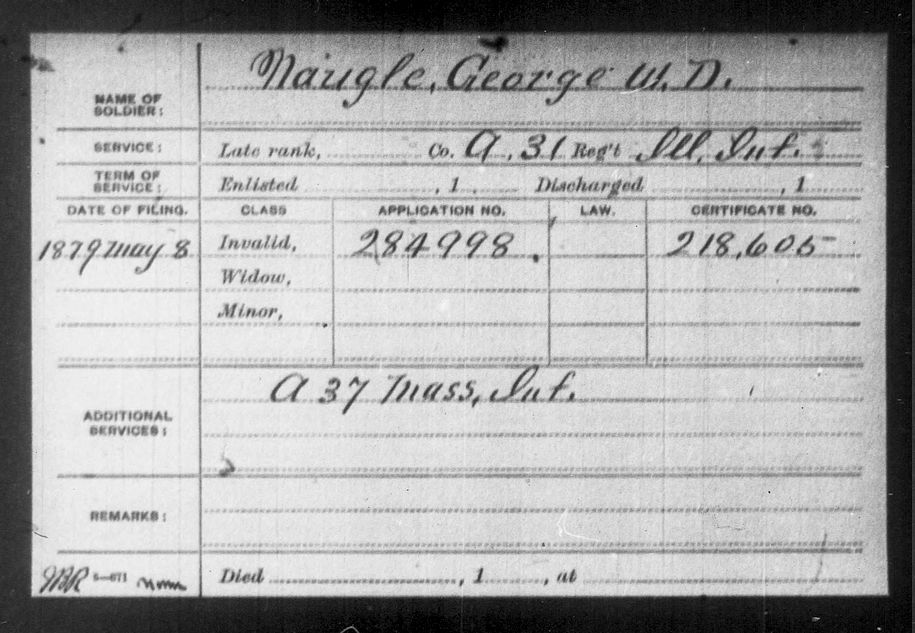 Naugle, George W. D.
NAME OF
SOLDIER:
SERVICE: Late rank, Co. A, 31 Reg't Ill. Inf.
TERM OF
SERVICE: Enlisted , 1 Discharged , 1
DATE OF FILING. CLASS APPLICATION NO. LAW. CERTIFICATE NO.
1879 May 8 Invalid, 284998. 218,605
Widow,
Minor,
A 37 Mass, Inf.
ADDITIONAL
SERVICES:
REMARKS:
6—671 Died , 1 , at